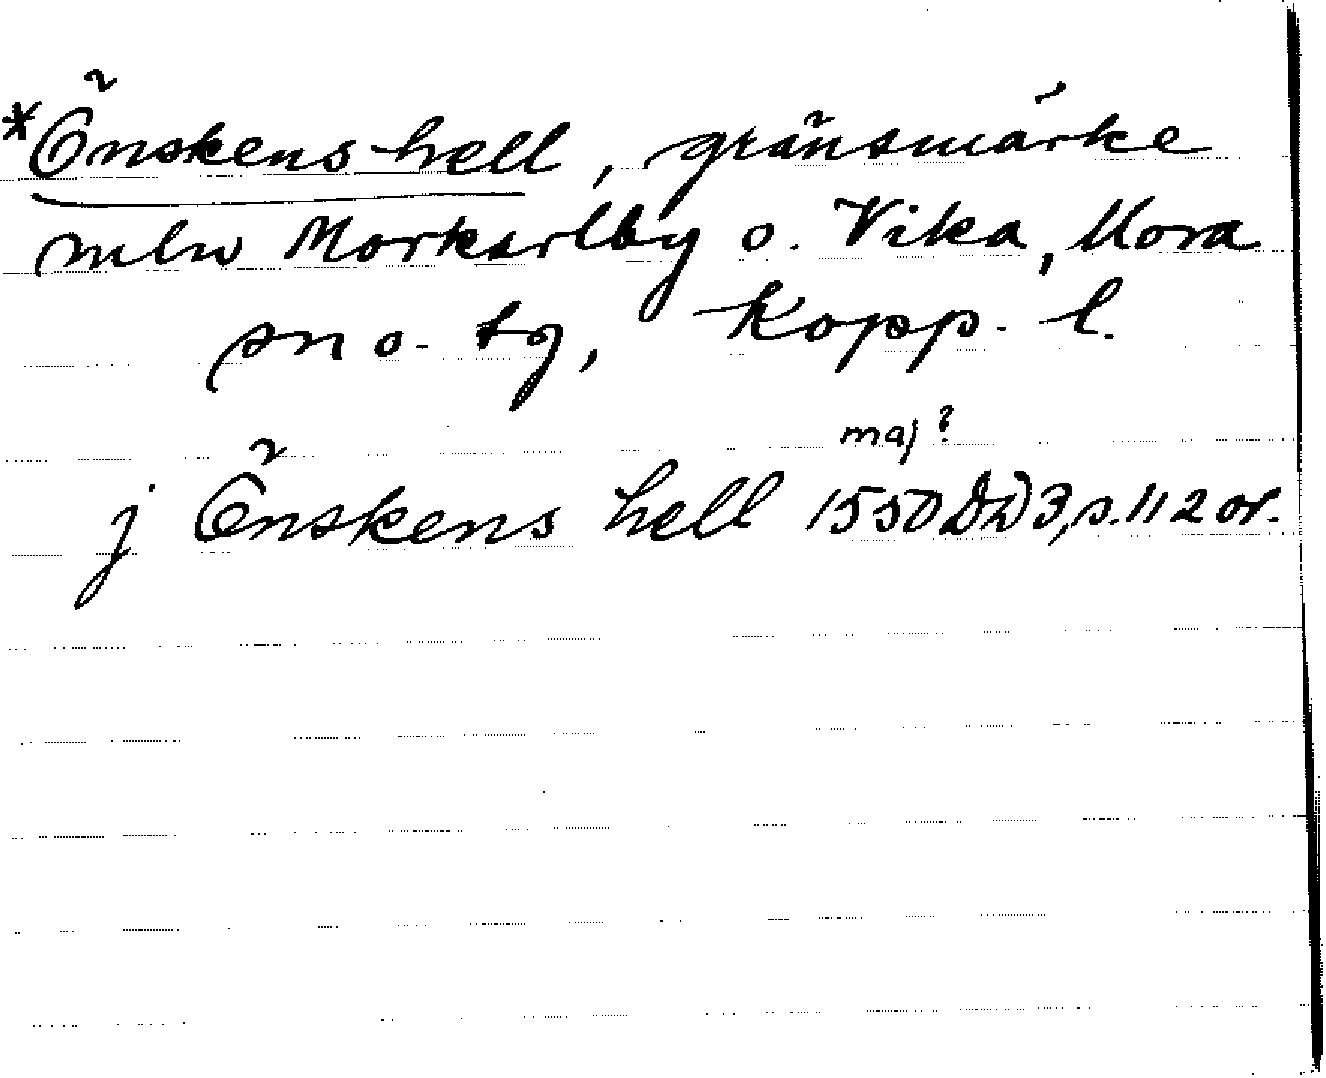 *Önskens hell, gränsmärke
mlw Morkarlby o. Vika, Mora
sn o. tg, Kopp. l.
maj?
j Önskens hell 1550 DD3, s. 112 or.